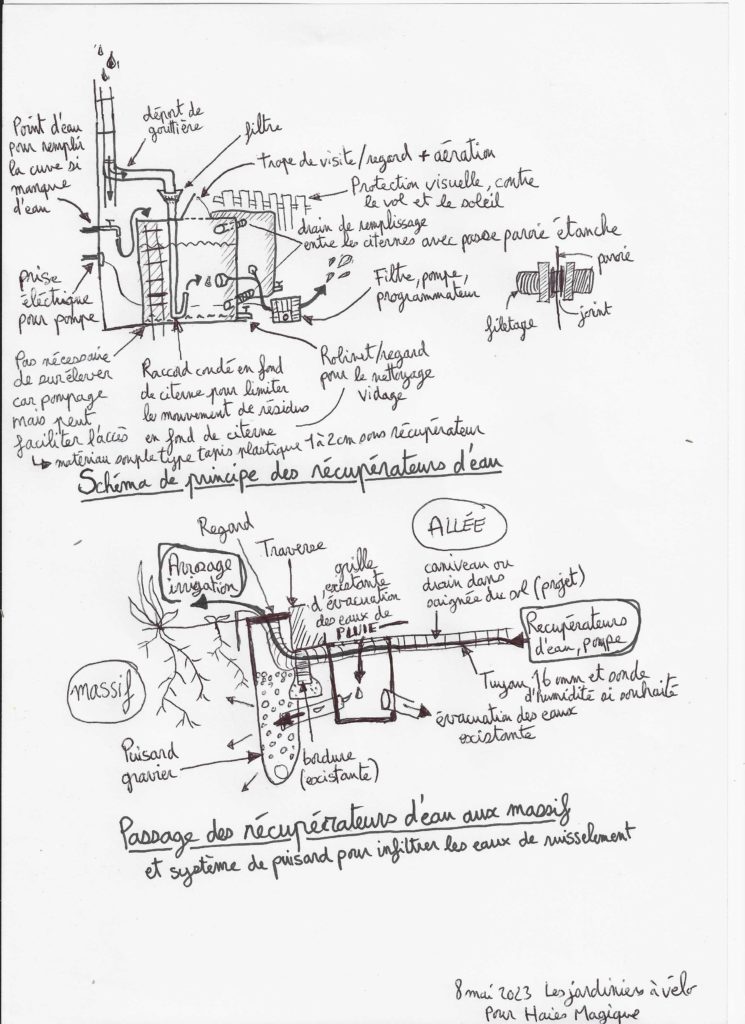 Point d'eau
pour remplir
la cuve si
manque
d'eau
déport de
gouttière
filtre
trape de visite/regard + aération
Protection visuelle, contre
le vol et le soleil
drain de remplissage
entre les citernes avec passe paroie étanche
paroie
filetage
joint
Filtre, pompe,
programmateur
prise
électrique
pour pompe
Pas nécessaire
de surélever
car pompage
mais peut
faciliter l'accès
Raccord condé en fond
de citerne pour limiter
le mouvement de résidus
en fond de citerne
Robinet/regard
pour le nettoyage
vidage
↳ matériau souple type tapis plastique 1 à 2cm sous récupérateur
Schéma de principe des récupérateurs d'eau
Regard
Traverse
ALLÉE
Arrosage
irrigation
grille
existante
d'évacuation
des eaux de
PLUIE
caniveau ou
drain dans
saignée du sol (projet)
Recupérateurs
d'eau, pompe
massif
Tuyau 16 mm et sonde
d'humidité si souhaité
évacuation des eaux
existante
Puisard
gravier
bordure
(existante)
Passage des récupérateurs d'eau aux massif
et système de puisard pour infiltrer les eaux de ruisselement
8 mai 2023 Les jardiniers à vélo
Pour Haies Magique